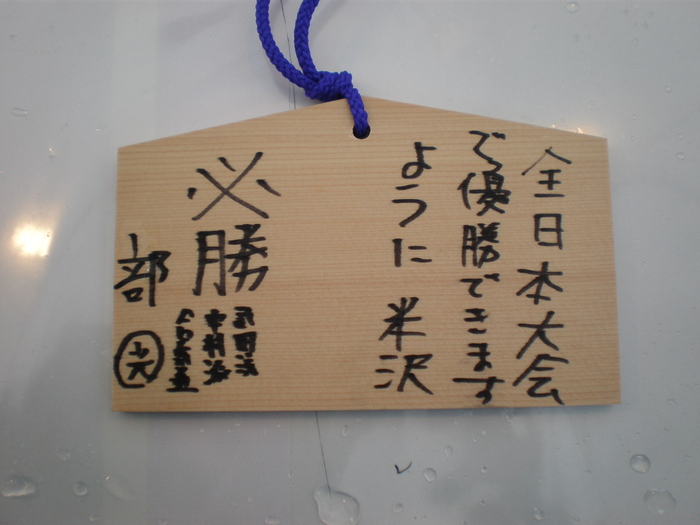 全日本大会
で優勝できます
ように 米沢
必勝
部 光